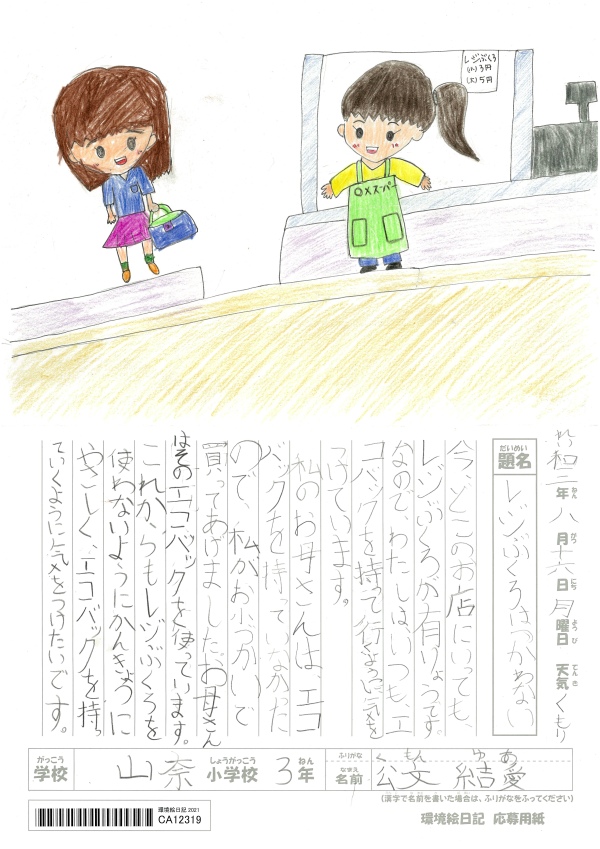 レジぶくろ
(小)3円
(大)5円
○×スーパー
れい
令和三年八月十六日月曜日 天気くもり
ねん がつ にち ようび てんき
だいめい
題名 レジぶくろはつかわない
今、どこのお店にいっても、
レジぶくろが有りょうです。
なので、わたしはいつも、エ
コバックを持って行くように気を
つけています。
私のお母さんは、エコ
バックを持っていなかった
ので、私がおこづかいで
買ってあげました。お母さん
はそのエコバックを使っています。
これからもレジぶくろを
使わないようにかんきょうに
やさしく、エコバックを持っ
ていくように気をつけたいです。
がっこう しょうがっこう ねん
学校 山奈 小学校 3年
ふりがな くもん ゆあ
なまえ
名前 公文 結愛
(漢字で名前を書いた場合は、ふりがなをふってください)
環境絵日記 2021
CA12319
環境絵日記 応募用紙